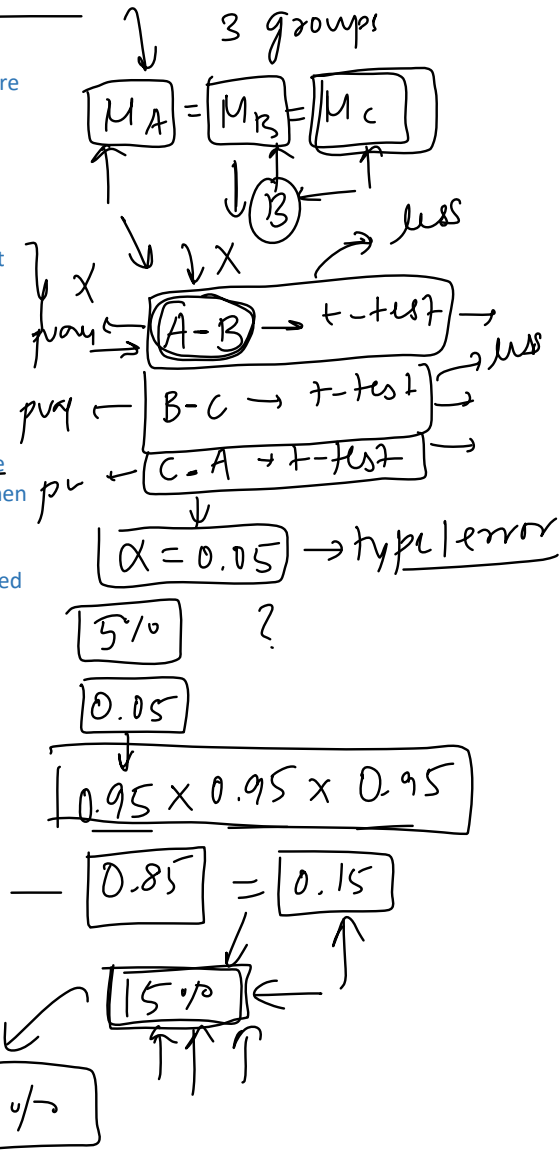 3 groups
re
μA = μB = μC
B
less
t
X X
A-B → t-test →
less
pval ← B-C → t-test →
e
pv ← C-A → t-test →
hen
α = 0.05 → type 1 error
ed
5% ?
0.05
0.95 × 0.95 × 0.95
— 0.85 = 0.15
15%
%